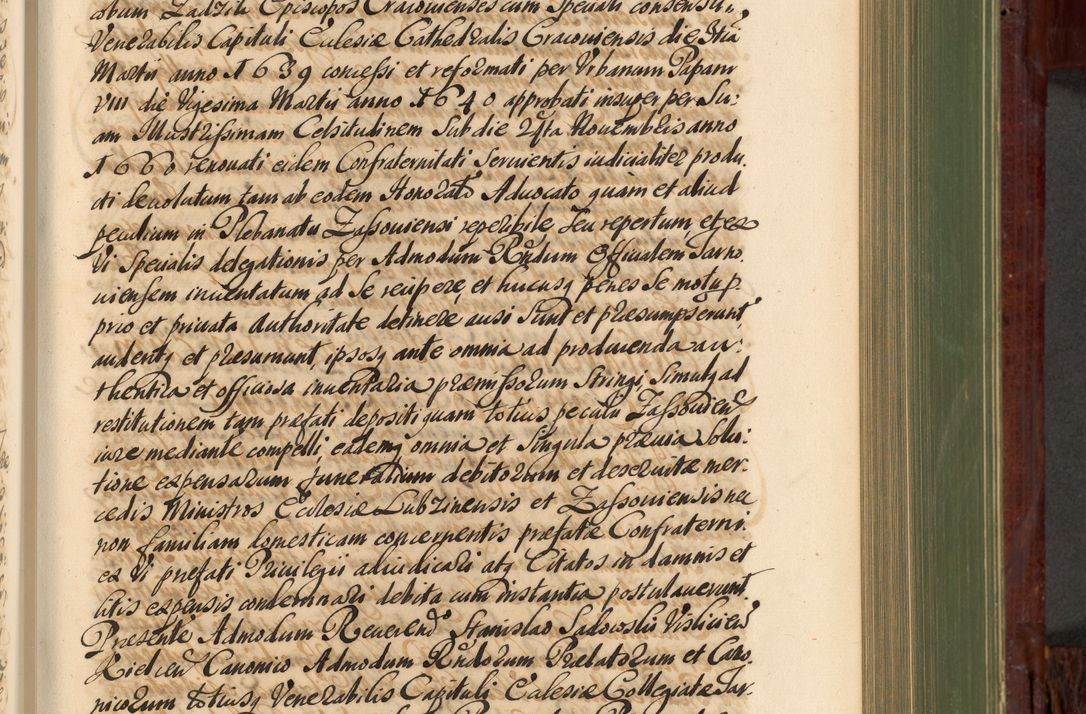 obum Zadzik Episcopos Cracouienses cum Speciali consensu
Venerabilis Capituli Eclesiæ Cathedralis Cracouiensis die 3tia
Martii anno 1639 concessi et reformati per Vrbanum Papam
VIII die Vigesima Martii anno 1640 approbati insuper per Su:
am Illustrissimam Celsitudinem Sub die 24ta Nouembris anno
1660 renouati eidem Confraternitati Seruientis iudicialiter produ,
cti deuolutum tam ab eodem Honorato Aduocato quam et aliud
peculium in Plebanatu Zassouiensi reperibile seu repertum, et ex
Vi Specialis delegationis per Admodum Rndum Officialem Tarno,
uiensem inuentatum ad Se recipere, et hucusq penes Se motu p
prio et priuata Authoritate detinere ausi Sunt et præsumpserunt,
audentq et præsumunt, ipsosq ante omnia ad producenda au:
thentica et officiosa inuentaria præmissorum Stringi, Simulq ad
restitutionem tam præfati depositi quam totius peculii Zassouien
iure mediante compelli, eademq omnia et Singula præuia Solu:
tione expensarum funeralium debitorum et deseruitæ mer:
cedis Ministros Eclesiæ Lubzinensis et Zassouiensis nec
non familiam domesticam concernentis præfatæ Confraterni.
ex Vi præfati Priuilegii adiudicari atq Citatos in damnis et
litis expensis condemnari debita cum instantia postulauerunt.
Presente Admodum Reuerend Stanislao Sadowski Vislicien
Kielcen Canonico Admodum Rndorum Prælatorum et Cano,
nicorum totiusq Venerabilis Capituli Eclesiæ Collegiatæ Tar.